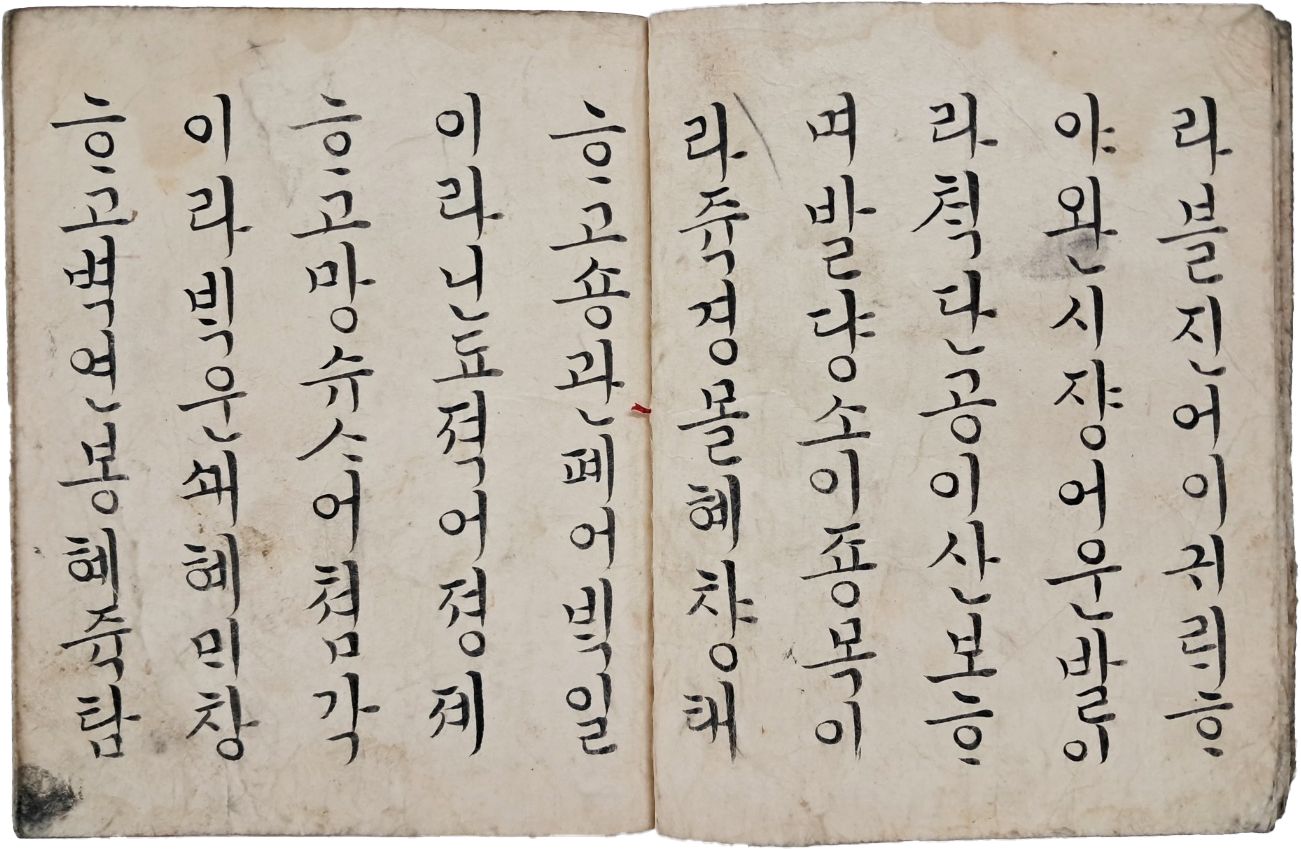 라블진어이귀ᄅᆡᄒᆞ
야완시쟝어운발이
라쳑단공이산모ᄒᆞ
며발댱소이죵목이
라쥭경몰혜챵태
ᄒᆞ고숑관폐어ᄇᆡᆨ일
이라닌됴젹어졍졔
ᄒᆞ고망슈ᄉᆞ어쳠각
이라ᄇᆡᆨ운쇄혜미창
ᄒᆞ고벽연몽혜쥭탑